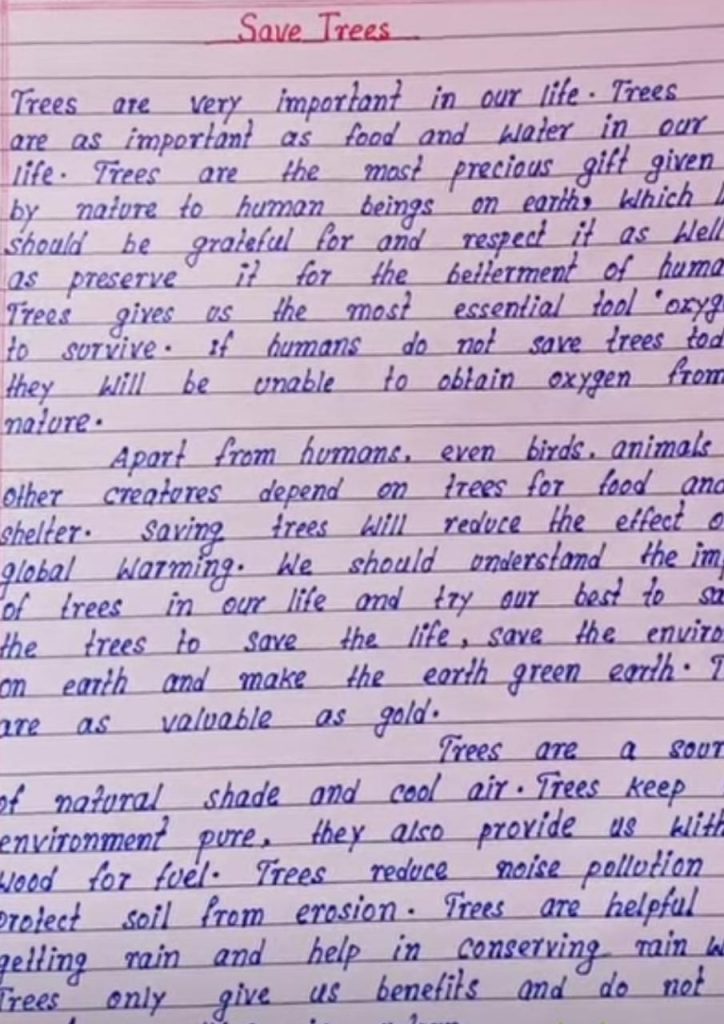 Save Trees
Trees are very important in our life. Trees
are as important as food and water in our
life. Trees are the most precious gift given
by nature to human beings on earth, which
should be grateful for and respect it as well
as preserve it for the betterment of huma
Trees gives us the most essential tool 'oxyg
to survive. If humans do not save trees tod
they will be unable to obtain oxygen from
nature.
Apart from humans, even birds, animals
other creatures depend on trees for food and
shelter. Saving trees will reduce the effect o
global warming. We should understand the im
of trees in our life and try our best to sa
the trees to save the life, save the enviro
on earth and make the earth green earth. T
are as valuable as gold.
Trees are a sour
of natural shade and cool air. Trees keep
environment pure, they also provide us with
wood for fuel. Trees reduce noise pollution
protect soil from erosion. Trees are helpful
getting rain and help in conserving rain w
Trees only give us benefits and do not